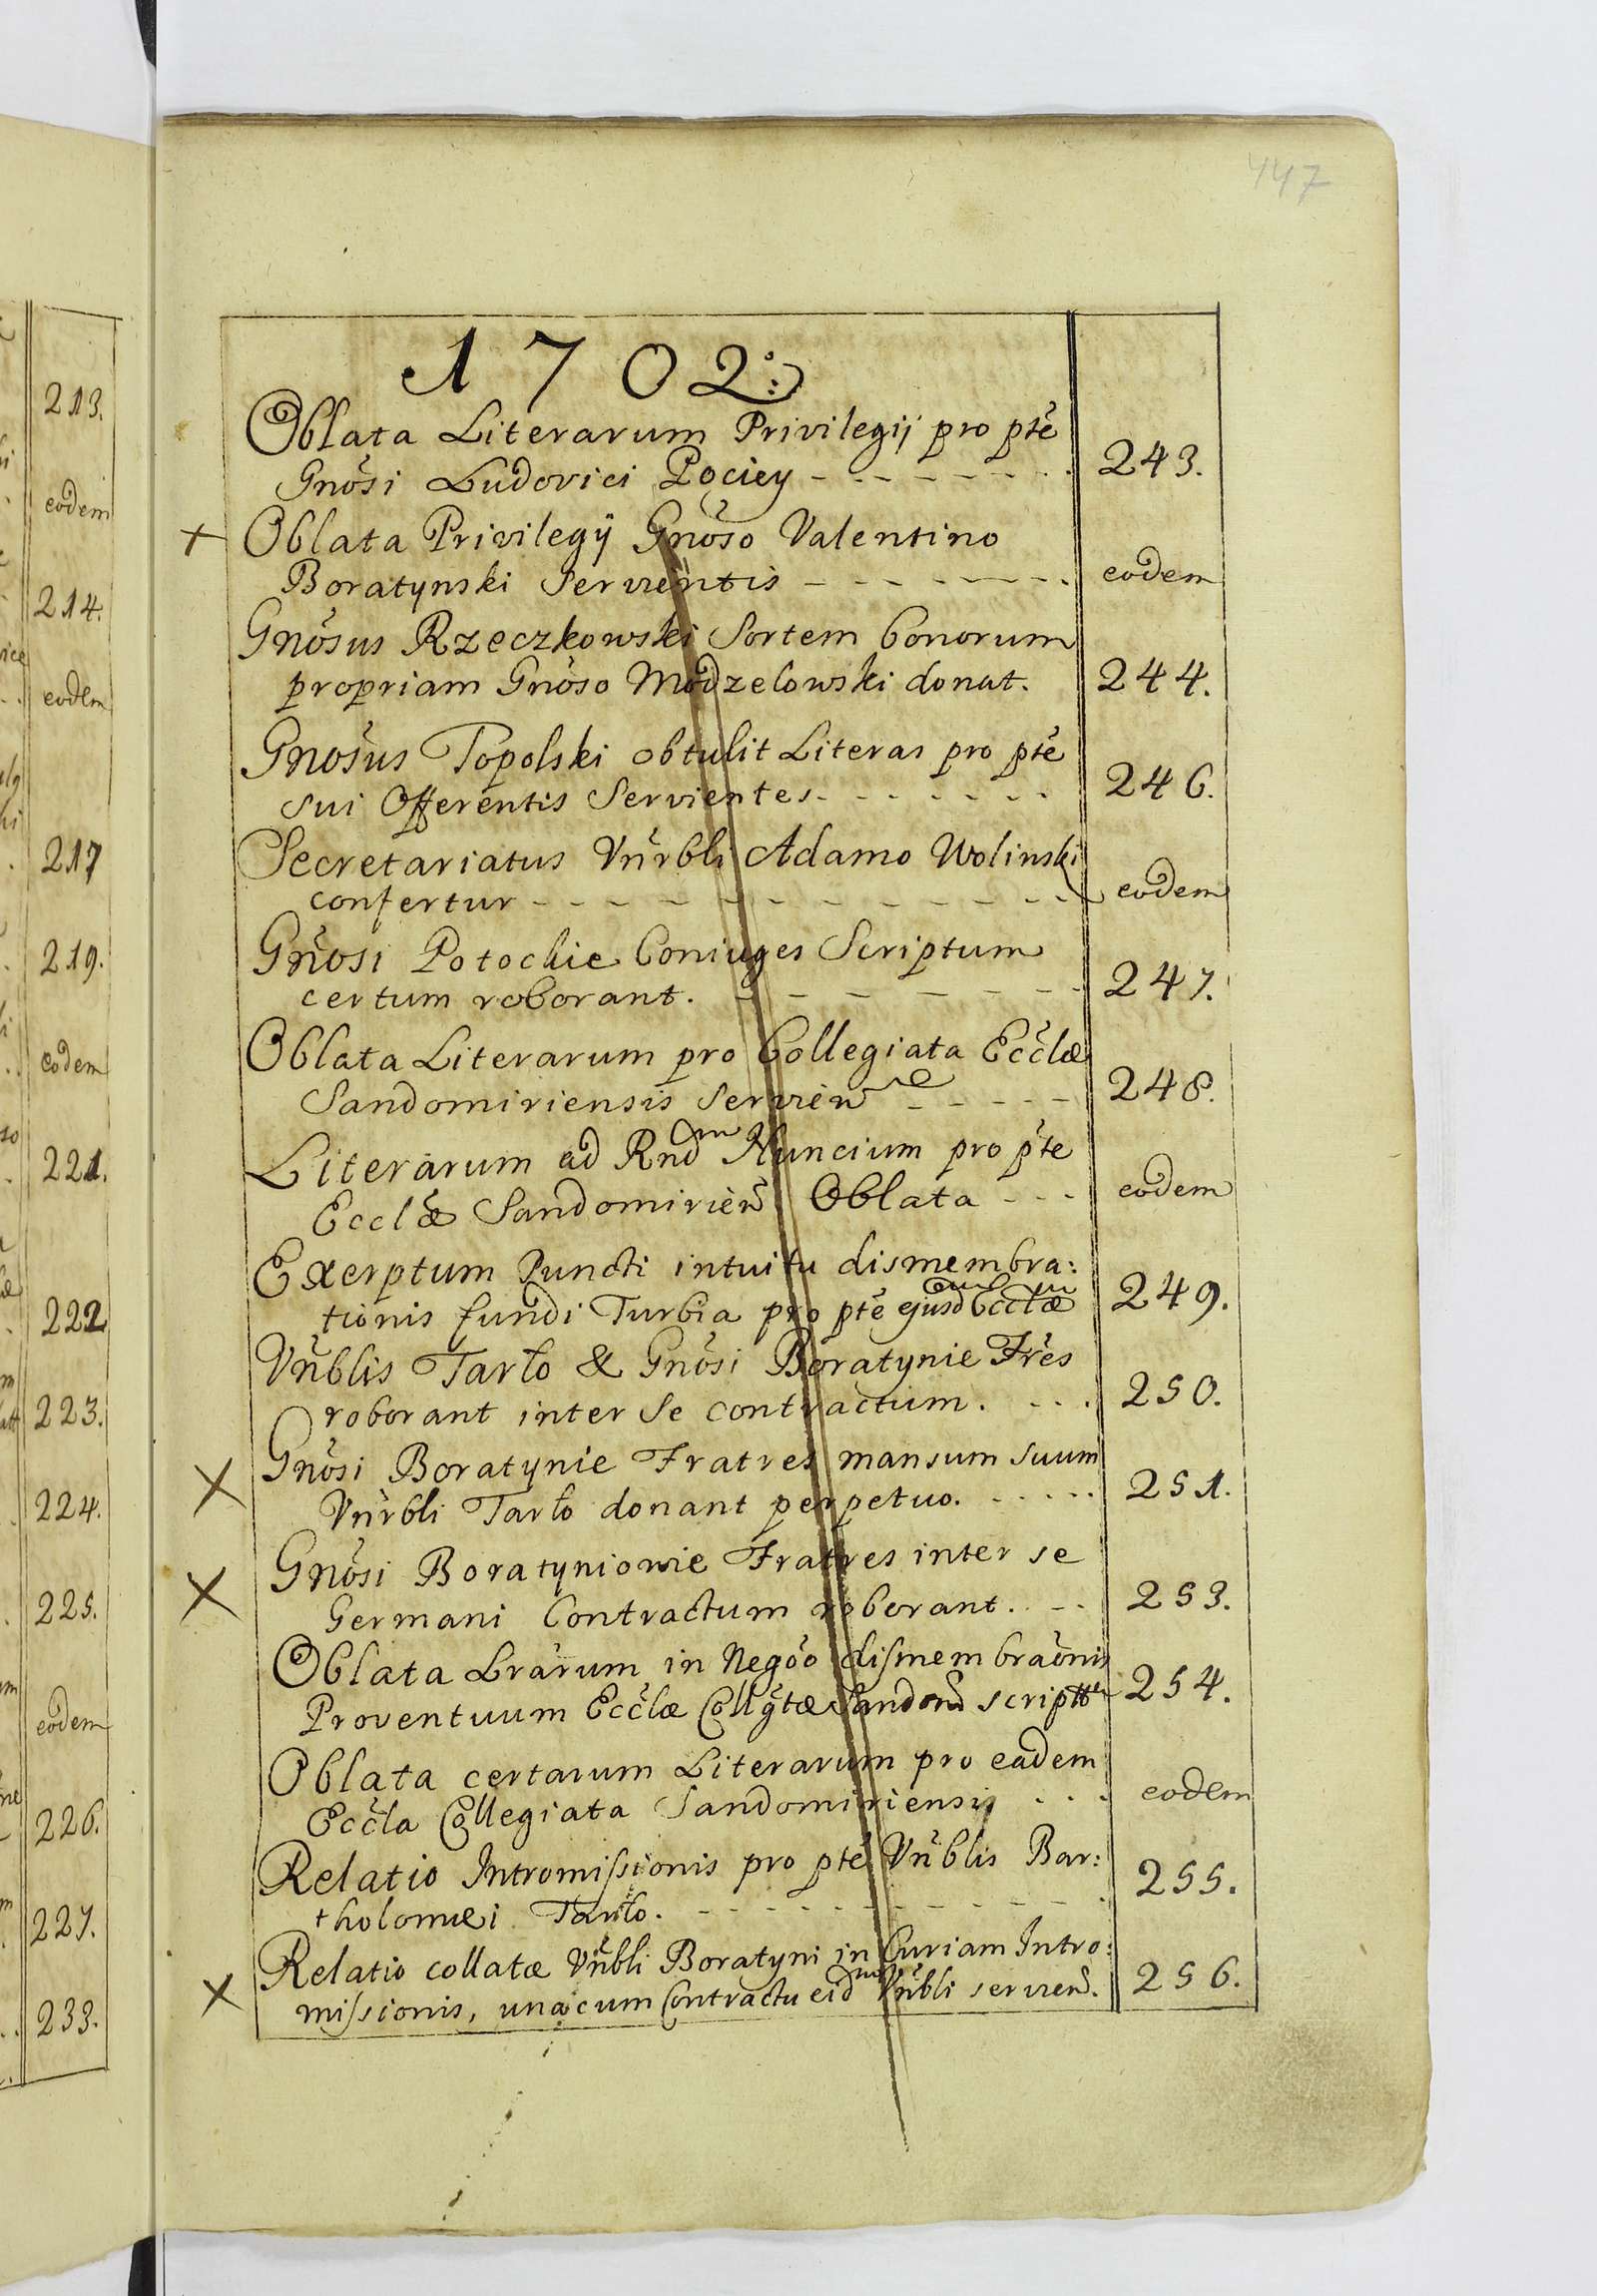 447
1702
Oblata Literarum Privilegij pro pte
Gnosi Ludovici Pociey - - - - - - 243.
+ Oblata Privilegÿ Gnoso Valentino
Boratynski Servientis - - - - - - eodem
Gnosus Rzeczkowski Sortem bonorum
propriam Gnoso Modzelowski donat. 244.
Gnosus Topolski obtulit Literas pro pte
sui Offerentis Servientes - - - - - - 246.
Secretariatus Vnrbli Adamo Wolinski
confertur - - - - - - eodem
Gnosi Potockie Coniuges Scriptum
certum roborant. - - - - - - 247.
Oblata Literarum pro Collegiata Ecclæ
Sandomiriensis Servien - - - - - 248.
Literarum ad Rndm Nuncium pro pte
Ecclæ Sandomirien Oblata - - - eodem
Exerptum Puncti intuitu dismembra:
tionis fundi Turbia pro pte ejusd Ecclæ 249.
Vnblis Tarło & Gnosi Boratynie Fres
roborant inter se contractum. . . . 250.
X Gnosi Boratynie Fratres mansum suum
Vnrbli Tarło donant perpetuo. . . . . . 251.
X Gnosi Boratyniowie Fratres inter se
Germani Contractum roborant. - - 253.
Oblata Lrarum in Negoo dismembraonis
Proventuum Ecclæ Collgtæ Sandom script 254.
Oblata certarum Literarum pro eadem
Eccla Collegiata Sandomiriensi . . . eodem
Relatio Intromissionis pro pte Vnblis Bar:
tholomei Tarło. - - - - - - 255.
Relatio collatæ Vnbli Boratyni in Curiam Intro:
X missionis, unacum Contractu eidm Vnbli servien. 256.
213.
eodem
214.
eodem
217
219.
eodem
221.
222
223.
224.
225.
eodem
226.
227.
233.